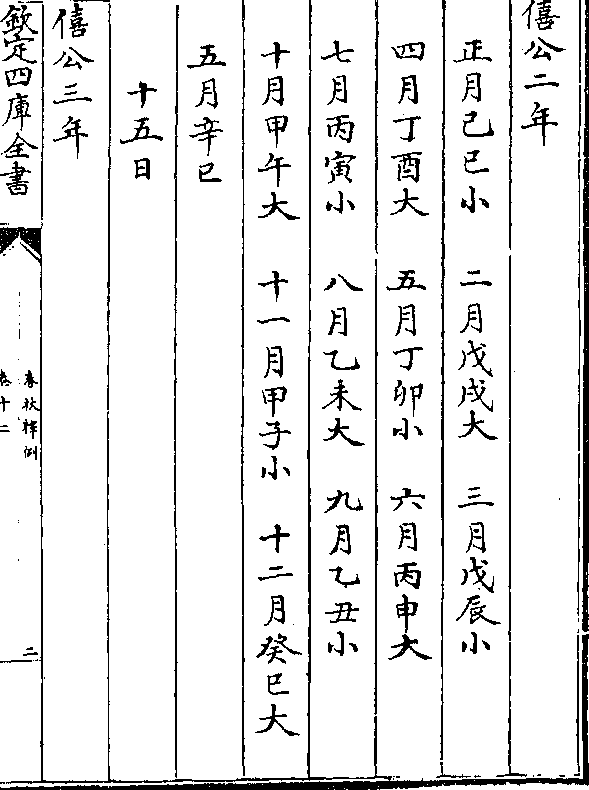 僖公二年
正月己巳小 二月戊戌大 三月戊辰小
四月丁酉大 五月丁卯小 六月丙申大
七月丙寅小 八月乙未大 九月乙丑小
十月甲午大 十一月甲子小 十二月癸巳大
五月辛巳
十五日
僖公三年
欽定四庫全書
春秋釋例
卷十二
二